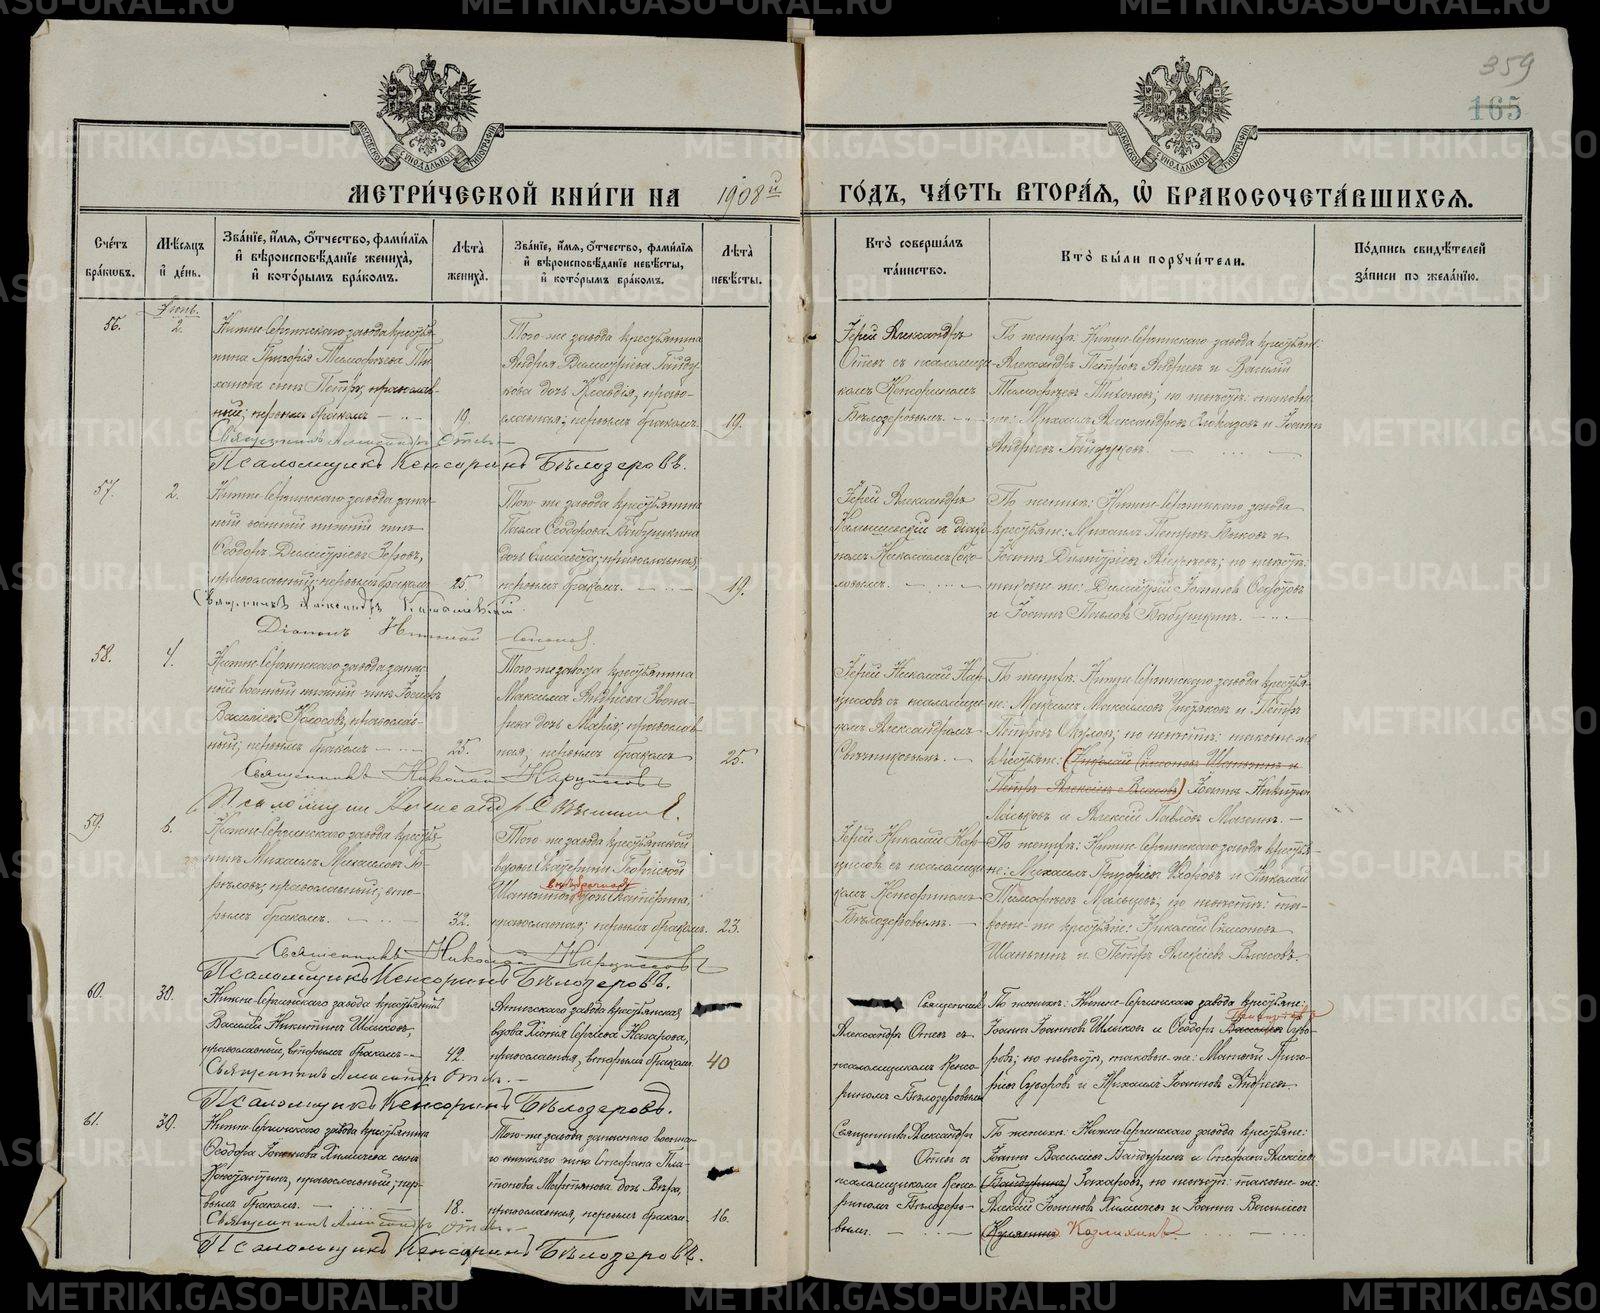 359
165
МОСКОВСКОЙ СУНОДАЛЬНОЙ ТИПОГРАФІИ
МЕТРИ́ЧЕСКОЙ КНИ́ГИ НА 1908й ГО́ДЪ, ЧА́СТЬ ВТОРА́Я, Ѽ БРАКОСОЧЕТА́ВШИХСЯ.
Сче́тъ бра́ковъ.
Мѣ́сяцъ и҆ де́нь.
Зва́нїе, и҆́мя, ѻ҆́тчество, фами́лїя и҆ вѣроисповѣ́данїе жениха̀, и҆ кото́рымъ бра́комъ.
Лѣ́та̀ жениха̀.
Зва́нїе, и҆́мя, ѻ҆́тчество, фами́лїя и҆ вѣроисповѣ́данїе невѣ́сты, и҆ кото́рымъ бра́комъ.
Лѣ́та̀ невѣ́сты.
Кто̀ соверша́лъ та́инство.
Кто̀ бы́ли порꙋчи́тели.
По́дпись свидѣ́телей за́писи по жела́нїю.
Іюнь.
56.
2.
Нижне-Сергинскаго завода крестья-
нина Григорія Тимофеева Ти-
хонова сынъ Петръ, православ-
ный; первымъ бракомъ
19.
Того-же завода крестьянина
Андрея Димитріева Гайду-
кова дочь Клавдія, право-
славная; первымъ бракомъ.
19.
Іерей Александръ
Отевъ съ псаломщи-
комъ Кенсориномъ
Бѣлозеровымъ.
По женихѣ: Нижне-Сергинскаго завода крестьяне:
Александръ Петровъ Андреевъ и Василій
Тимофеевъ Тихоновъ; по невѣстѣ: таковые
же: Михаилъ Александровъ и Іоаннъ
Андреевъ Гайдуковъ.
Священникъ Александръ Отевъ.
Псаломщикъ Кенсоринъ Бѣлозеровъ.
57.
2.
Нижне-Сергинскаго завода запас-
ный военный нижній чинъ
Ѳеодоръ Димитріевъ
православный; первымъ бракомъ
25.
Того-же завода крестьянина
Павла Ѳеодорова Бабушкина
дочь православная;
первымъ бракомъ.
19.
Іерей Александръ
и діако-
номъ Николаемъ Соко-
ловымъ.
По женихѣ: Нижне-Сергинскаго завода
крестьяне: Михаилъ Петровъ Быковъ и
Іоаннъ Димитріевъ по невѣстѣ
таковые же: Димитрій
и Іоаннъ Павловъ Бабушкинъ.
Священникъ Александръ
Діаконъ Николай Соколовъ
58.
4.
Нижне-Сергинскаго завода запас-
ный военный нижній чинъ Іосифъ
Василіевъ Колосовъ, православ-
ный; первымъ бракомъ
25.
Того-же завода крестьянина
Максима Андреева Звона-
рева дочь Марія; православ-
ная; первымъ бракомъ
25.
Іерей Николай Нар-
циссовъ съ псаломщи-
комъ Александромъ
По женихѣ: Нижне-Сергинскаго завода крестья-
не: Максимъ Максимовъ и Петръ
Петровъ Окуловъ; по невѣстѣ: таковые-же
крестьяне: (Николай Симоновъ Шаньгинъ и
Петръ Алексѣевъ Власовъ) Іоаннъ
и Алексѣй Павловъ
Священникъ Николай Нарциссовъ
Псаломщикъ Александръ
59.
6.
Нижне-Сергинскаго завода крестья-
нинъ Михаилъ Михаиловъ Го-
рѣловъ; православный; вто-
рымъ бракомъ.
32.
Того-же завода крестьянской
вдовы Екатерины Георгіевой
Шаньгиной дочь Екатерина,
православная; первымъ бракомъ.
23.
Іерей Николай Нар-
циссовъ съ псаломщи-
комъ Кенсориномъ
Бѣлозеровымъ.
По женихѣ: Нижне-Сергинскаго завода крестья-
не: Михаилъ Григорьевъ и Николай
Тимофеевъ Мальцевъ; по невѣстѣ: та-
ковые-же крестьяне: Николай Симоновъ
Шаньгинъ и Петръ Алексѣевъ Власовъ.
Священникъ Николай Нарциссовъ
Псаломщикъ Кенсоринъ Бѣлозеровъ.
60.
30.
Нижне-Сергинскаго завода крестьянинъ
Василій Никитинъ Шлыковъ,
православный, вторымъ бракомъ
42.
Атигскаго завода крестьянская
вдова Хіонія Сергѣева Назарова,
православная, вторымъ бракомъ
40
Священникъ
Александръ Отевъ съ
псаломщикомъ Кенсо-
риномъ Бѣлозеровымъ
По женихѣ: Нижне-Сергинскаго завода крестьяне:
Іоаннъ Іоанновъ Шлыковъ и Ѳеодоръ Васильевъ Суво-
ровъ; по невѣстѣ, таковые-же: Матвѣй Григо-
рьевъ Суворовъ и Михаилъ Іоанновъ Андреевъ.
Священникъ Александръ Отевъ.
Псаломщикъ Кенсоринъ Бѣлозеровъ.
61.
30.
Нижне-Сергинскаго завода крестьянина
Ѳеодора Іоаннова Химичева сынъ
Константинъ, православный; пер-
вымъ бракомъ.
18.
Того-же завода запаснаго военна-
го нижняго чина Стефана Пла-
тонова Мартьянова дочь Вѣра,
православная, первымъ бракомъ
16.
Священникъ Александръ
Отевъ съ
псаломщикомъ Кенсо-
риномъ Бѣлозеро-
вымъ.
По женихѣ: Нижне-Сергинскаго завода крестьяне:
Іоаннъ Василіевъ Байдуринъ и Стефанъ Алексѣевъ
(Байдуринъ) Захаровъ, по невѣстѣ: таковые-же:
Алексѣй Іоанновъ Химичевъ и Іоаннъ Василіевъ
Козлихинъ
Священникъ Александръ Отевъ.
Псаломщикъ Кенсоринъ Бѣлозеровъ.
METRIKI.GASO-URAL.RU